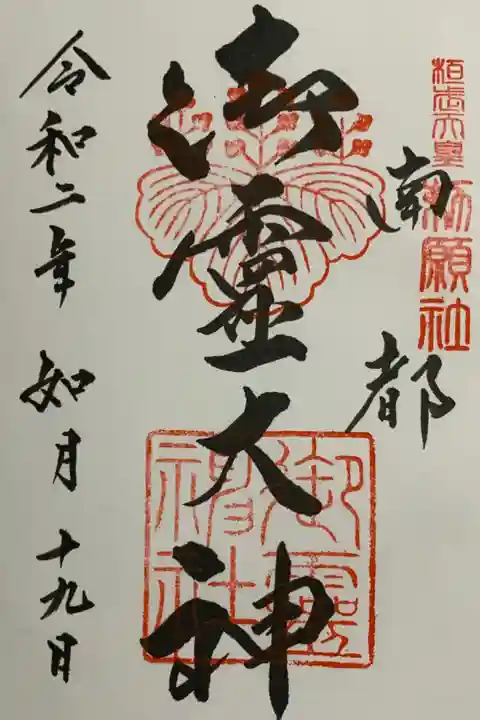 桓武天皇
勅願社
南都
御霊大神
御霊神社
令和二年 如月 十九日